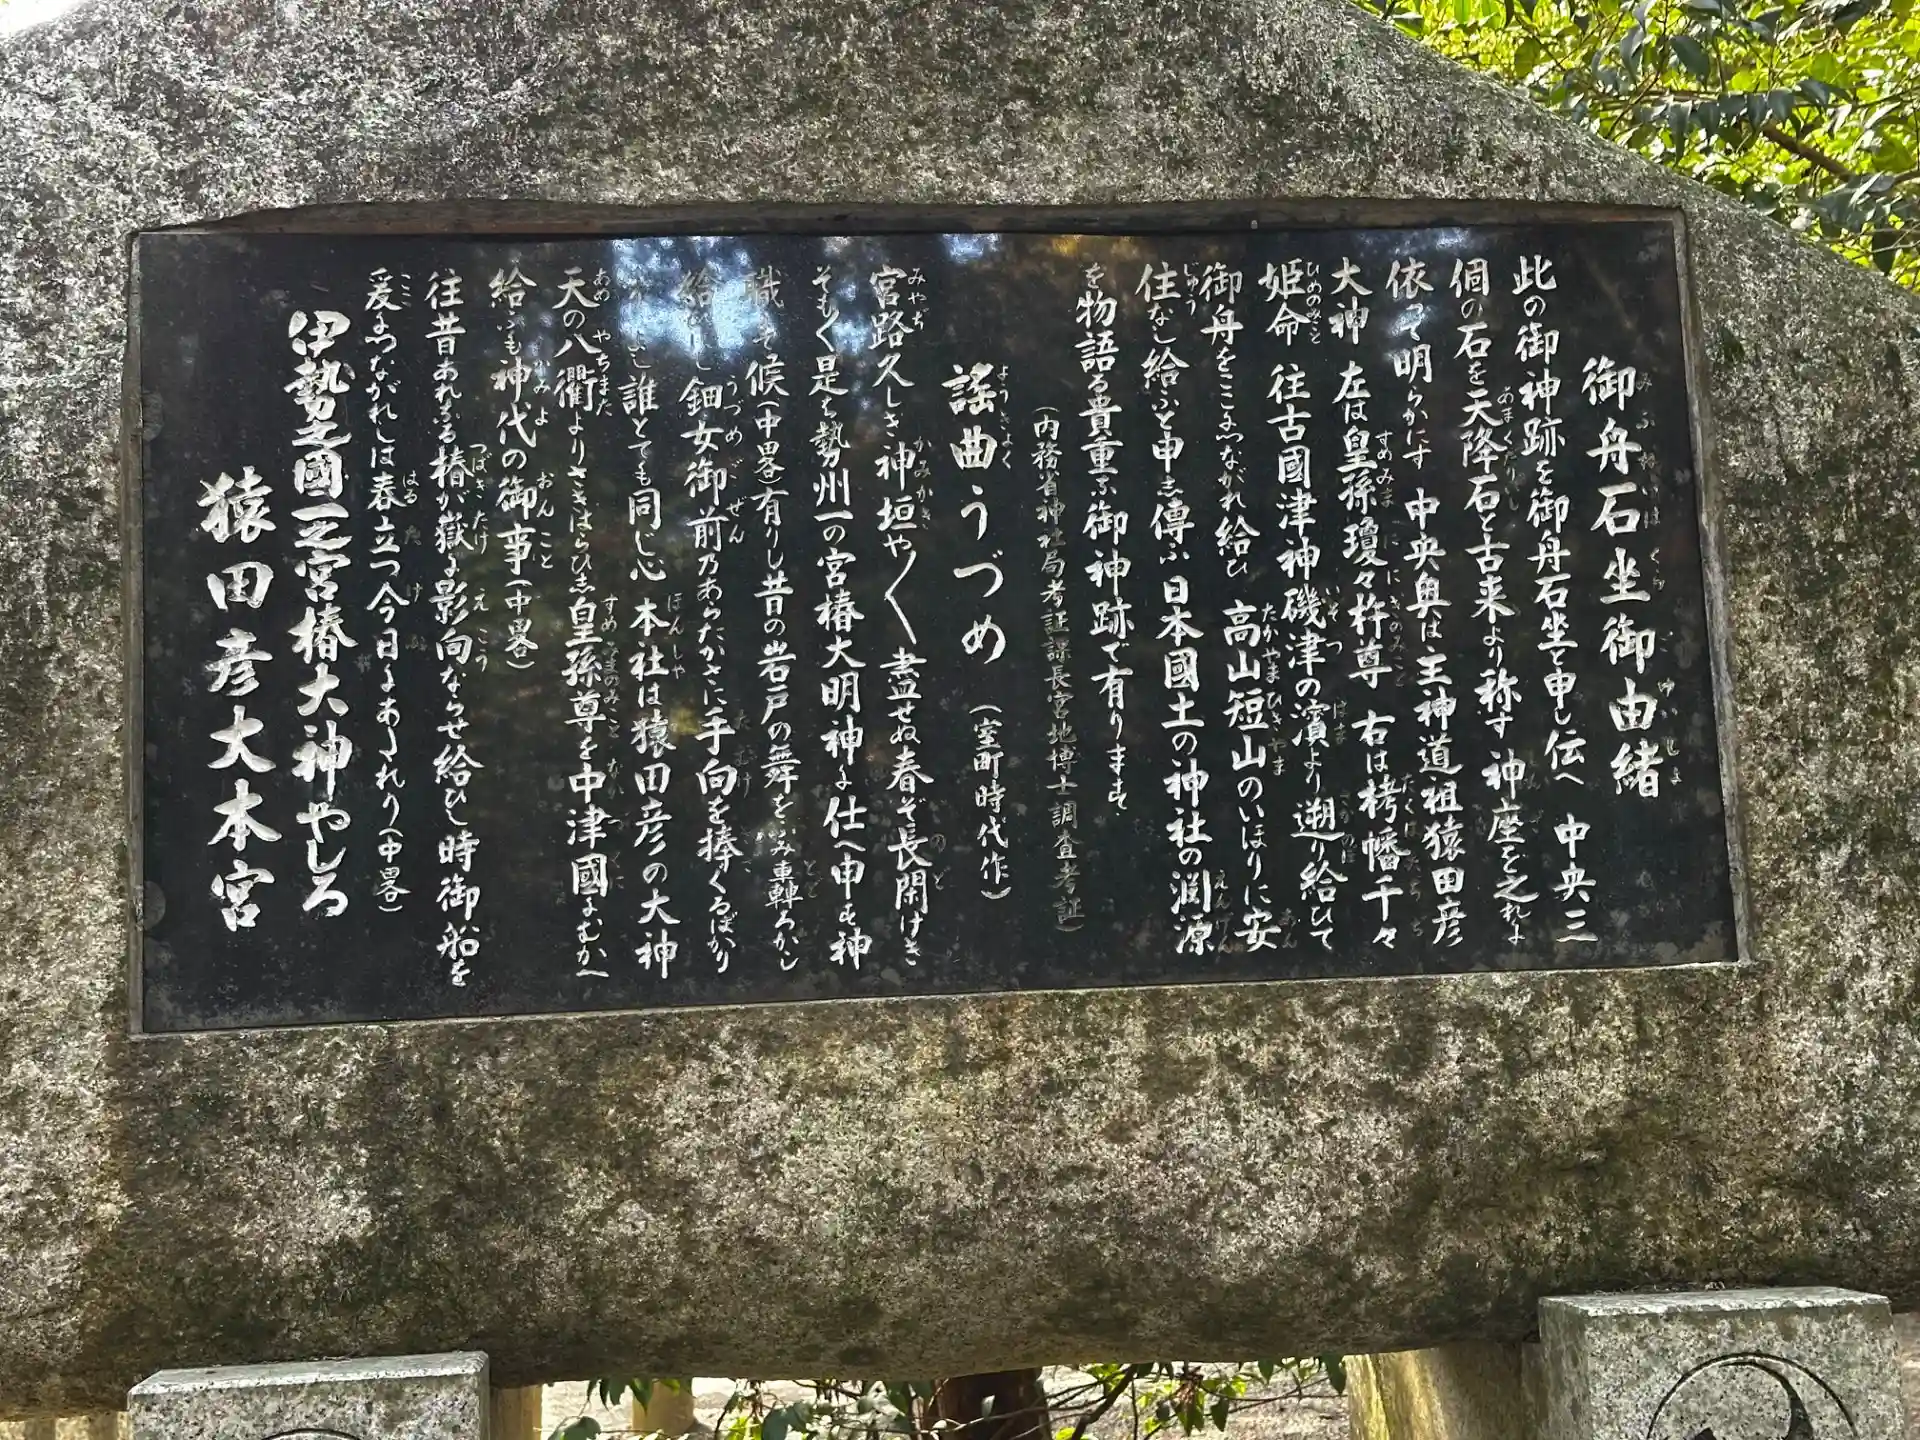 御舟石坐御由緒
此の御神跡を御舟石坐と申し伝へ 中央三
個の石を天降石と古来より称す 神座を之れよ
依つて明らかにす 中央奥は主神道祖猿田彦
大神 左は皇孫瓊々杵尊 右は栲幡千々
姫命 往古國津神磯津の濵より遡り給ひて
御舟をこゝにつながれ給ひ 高山短山のいほりに安
住なし給ふと申し傳ふ日本國土の神社の渕源
を物語る貴重な御神跡で有ります
(内務省神社局考証課長宮地博士調査考証)
謡曲うづめ(室町時代作)
宮路久しき神垣や〱 盡せぬ春ぞ長閑けき
そも〱是は勢州一の宮椿大明神に仕へ申す神
職にて候(中畧)有りし昔の岩戸の舞を
鈿女御前乃あらたかさに手向を捧くるばかり
誰とても同じ心 本社は猿田彦の大神
天の八衢よりさきはらひし皇孫尊を中津國にむかへ
給ふも神代の御事(中畧)
往昔あれなる椿が嶽に影向ならせ給ひし時御船を
爰につながれしは春立つ今日にあたれり(中畧)
伊勢之國一之宮椿大神やしろ
猿田彦大本宮